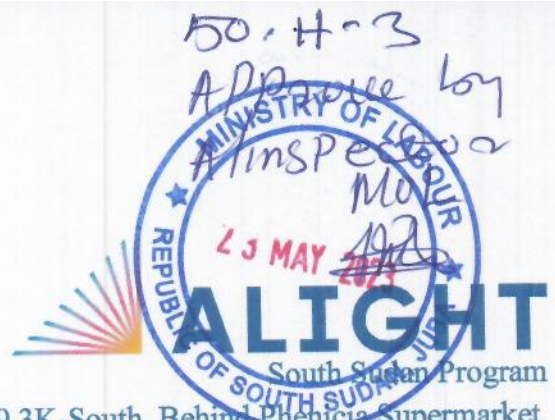 50.H-3
APProve by
A/insPector
MOL
MINISTRY OF LABOUR
REPUBLIC OF SOUTH SUDAN JUBA
23 MAY 2023
ALIGHT
South Sudan Program
3K-South, Behind Phenicia Supermarket